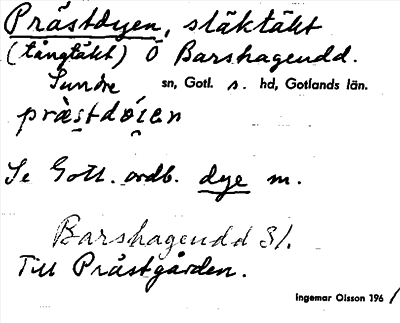 Prästdyen, släktäkt
(tångtäkt) Ö Barshagendd.
Sundre sn, Gotl. s. hd, Gotlands län.
prästdöien
Se Gotl. ordb. dye m.
Barshagendd 31.
Till Prästgården.
Ingemar Olsson 1961